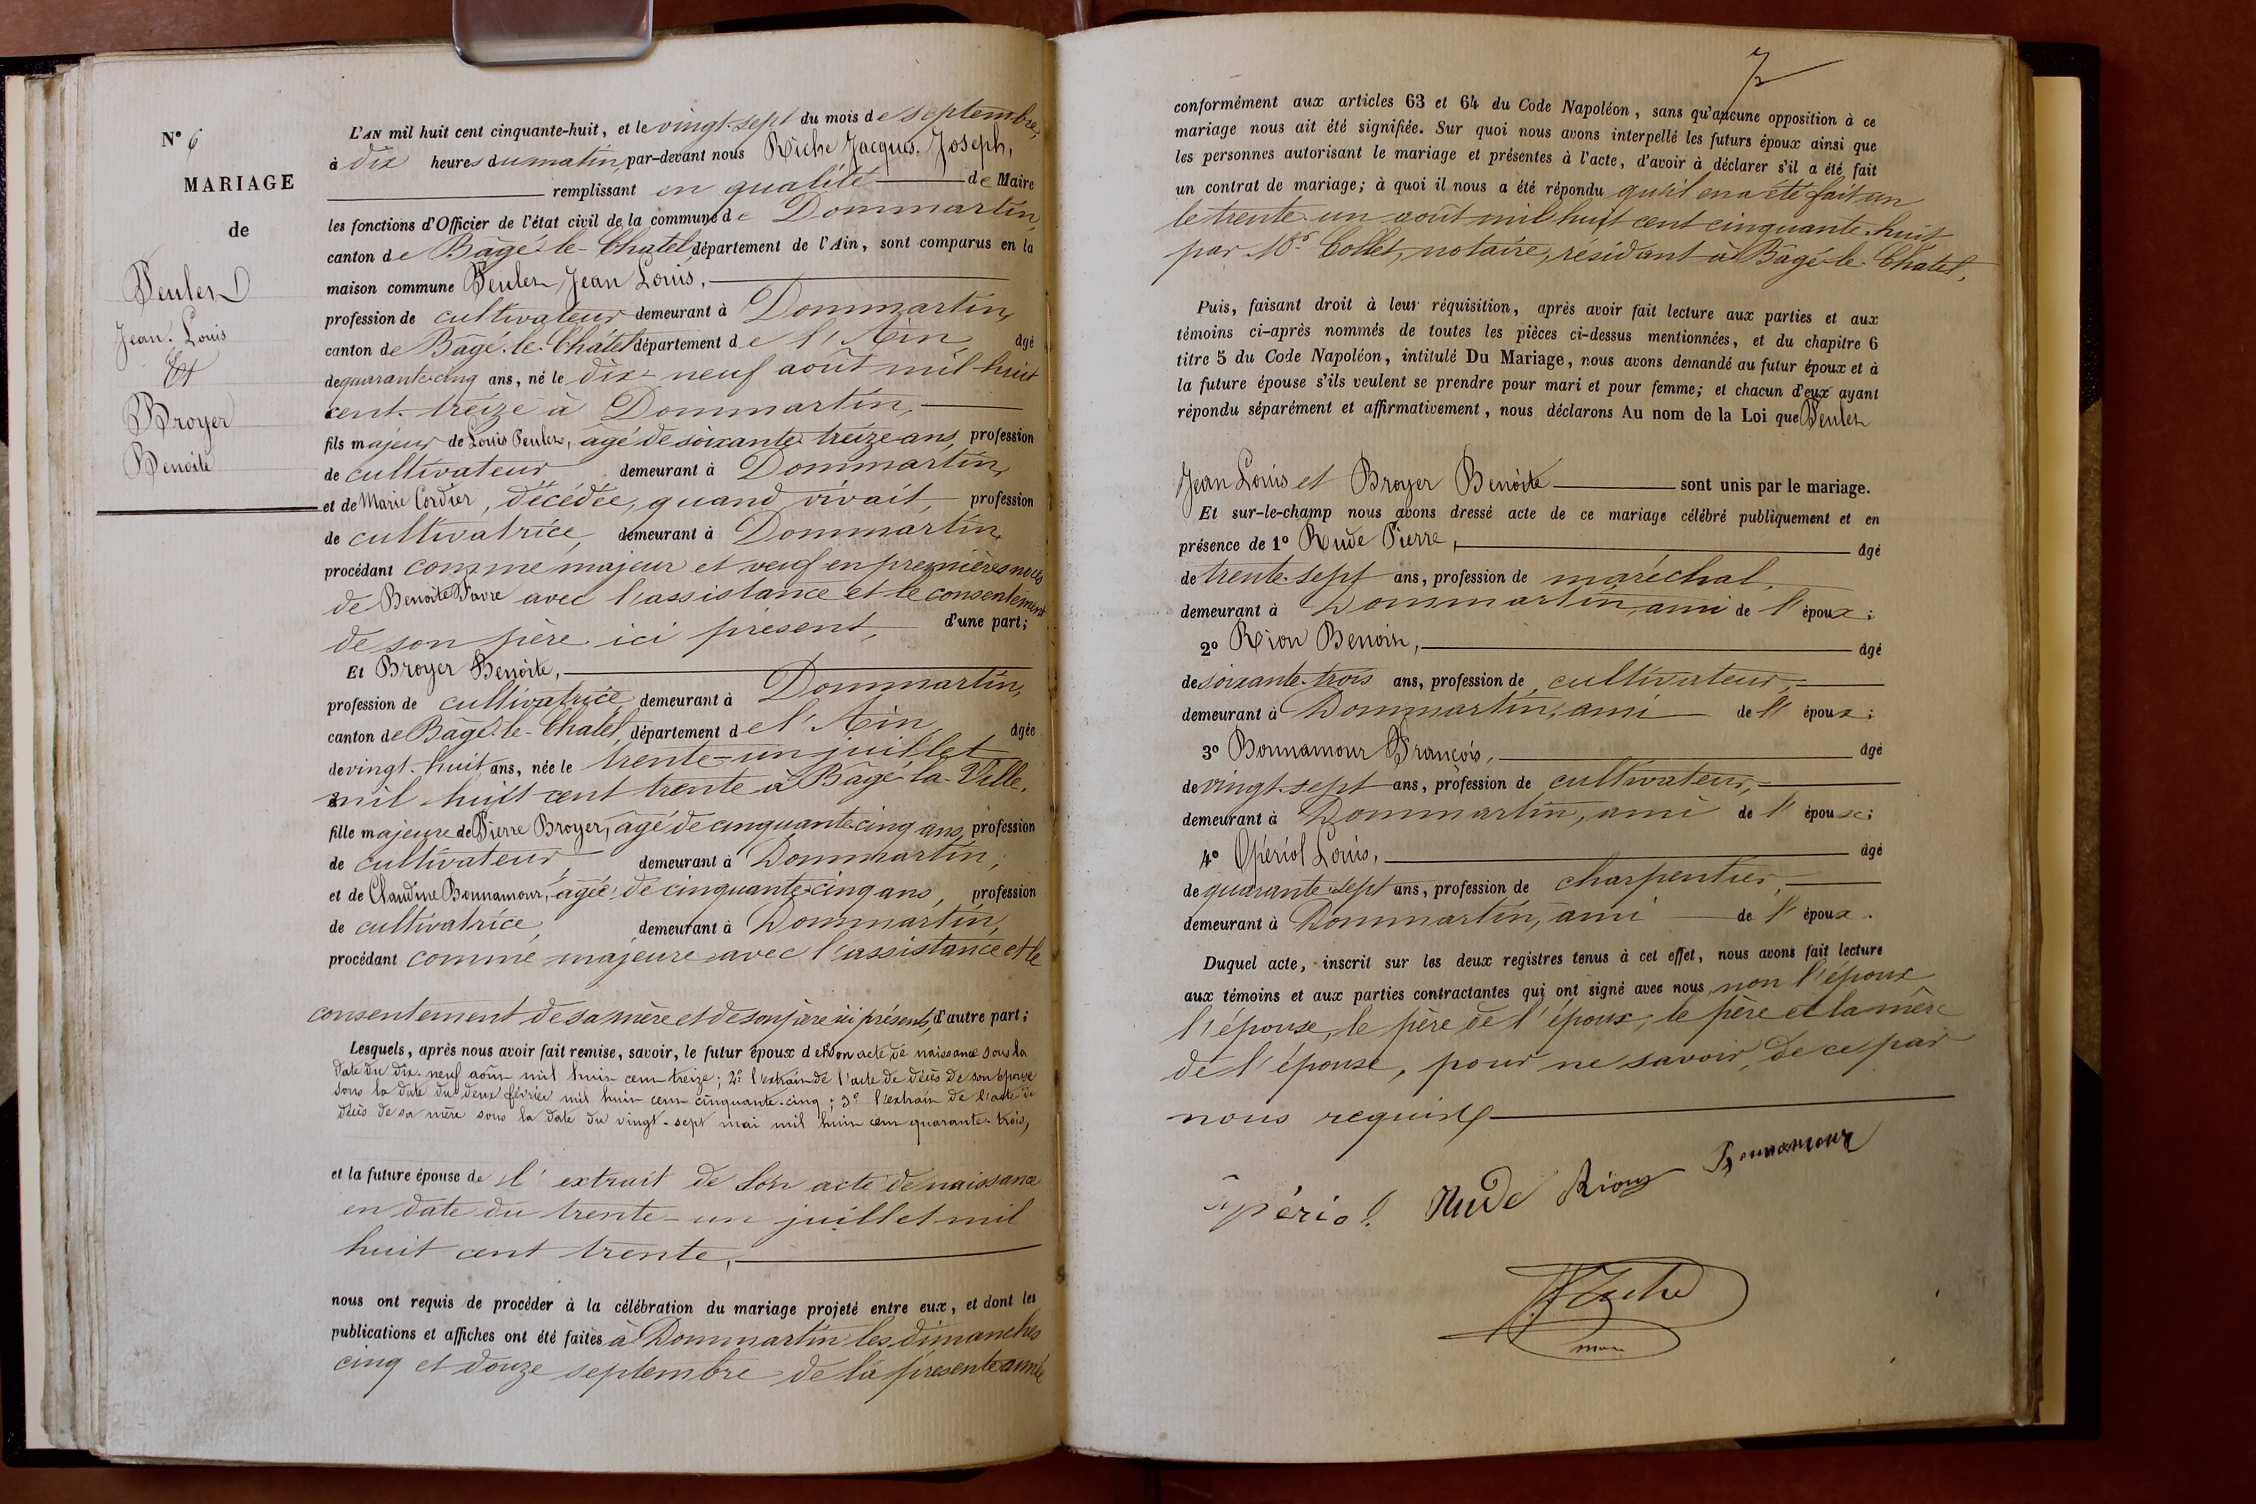 N° 6
MARIAGE
de
Feuler
Jean Louis
Et
Broyer
Benoite
L'AN mil huit cent cinquante-huit, et le vingt-sept du mois de septembre,
à dix heures du matin, par-devant nous Riche Jacques Joseph,
remplissant en qualité de Maire
les fonctions d'Officier de l'état civil de la commune de Dommartin,
canton de Bâgé-le-Chatel, département de l'Ain, sont comparus en la
maison commune Feuler Jean Louis,
profession de cultivateur demeurant à Dommartin,
canton de Bagé-le-Chatel département de l'Ain âgé
de quarante-cinq ans, né le dix-neuf août mil huit
cent treize à Dommartin,
fils majeur de Louis Feuler, âgé de soixante treize ans, profession
de cultivateur demeurant à Dommartin,
et de Marie Cordier, décédée, quand vivait, profession
de cultivatrice, demeurant à Dommartin,
procédant comme majeur et veuf en premières noces
de Benoite Favre avec l'assistance et le consentement
de son père ici présent, d'une part;
Et Broyer Benoite,
profession de cultivatrice demeurant à Dommartin,
canton de Bâgé-le-Chatel, département de l'Ain âgée
de vingt-huit ans, née le trente-un juillet
mil huit cent trente à Bâgé-la-Ville,
fille majeure de Pierre Broyer, âgé de cinquante-cinq ans, profession
de cultivateur, demeurant à Dommartin,
et de Claudine Bonnamour, âgée de cinquante-cinq ans, profession
de cultivatrice, demeurant à Dommartin,
procédant comme majeure avec l'assistance et le
consentement de sa mère et de son père ici présents, d'autre part;
Lesquels, après nous avoir fait remise, savoir, le futur époux de son acte de naissance sous la
date du dix-neuf août mil huit cent treize; 2° l'extrait de l'acte de décès de son épouse
sous la date du deux février mil huit cent cinquante-cinq; 3° l'extrait de l'acte de
décès de sa mère sous la date du vingt-sept mai mil huit cent quarante-trois,
et la future épouse de l'extrait de son acte de naissance
en date du trente-un juillet mil
huit cent trente,
nous ont requis de procéder à la célébration du mariage projeté entre eux, et dont les
publications et affiches ont été faites à Dommartin les dimanches
cinq et douze septembre de la présente année
7
conformément aux articles 63 et 64 du Code Napoléon, sans qu'aucune opposition à ce
mariage nous ait été signifiée. Sur quoi nous avons interpellé les futurs époux ainsi que
les personnes autorisant le mariage et présentes à l'acte, d'avoir à déclarer s'il a été fait
un contrat de mariage; à quoi il nous a été répondu qu'il en a été fait un
le trente-un août mil huit cent cinquante-huit
par Me Collet, notaire, résidant à Bâgé-le-Châtel,
Puis, faisant droit à leur réquisition, après avoir fait lecture aux parties et aux
témoins ci-après nommés de toutes les pièces ci-dessus mentionnées, et du chapitre 6
titre 5 du Code Napoléon, intitulé Du Mariage, nous avons demandé au futur époux et à
la future épouse s'ils veulent se prendre pour mari et pour femme; et chacun d'eux ayant
répondu séparément et affirmativement, nous déclarons Au nom de la Loi que Feuler
Jean Louis et Broyer Benoite sont unis par le mariage.
Et sur-le-champ nous avons dressé acte de ce mariage célébré publiquement et en
présence de 1° Rude Pierre, âgé
de trente-sept ans, profession de maréchal,
demeurant à Dommartin, ami de l'époux;
2° Rion Benoit, âgé
de soixante-trois ans, profession de cultivateur,
demeurant à Dommartin, ami de l'époux;
3° Bonnamour François, âgé
de vingt-sept ans, profession de cultivateur,
demeurant à Dommartin, ami de l'épouse;
4° Opériol Louis, âgé
de quarante-sept ans, profession de charpentier,
demeurant à Dommartin, ami de l'époux.
Duquel acte, inscrit sur les deux registres tenus à cet effet, nous avons fait lecture
aux témoins et aux parties contractantes qui ont signé avec nous, non l'époux
l'épouse, le père de l'époux, le père et la mère
de l'épouse, pour ne savoir, de ce par
nous requis
Opériol Rude Rioux Bonnamour
Riche
maire